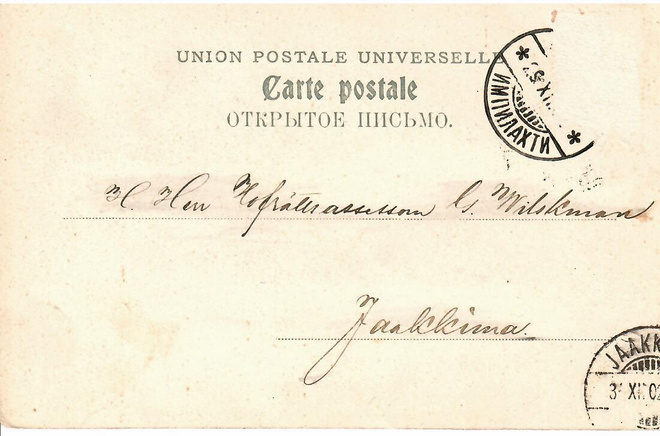 UNION POSTALE UNIVERSELLE
Carte postale
ОТКРЫТОЕ ПИСЬМО.
ИМПИЛАХТИ
H. Herr Hofrättsassessorn G. Wilskman
Jaakkima
JAAKK
31 XII 02